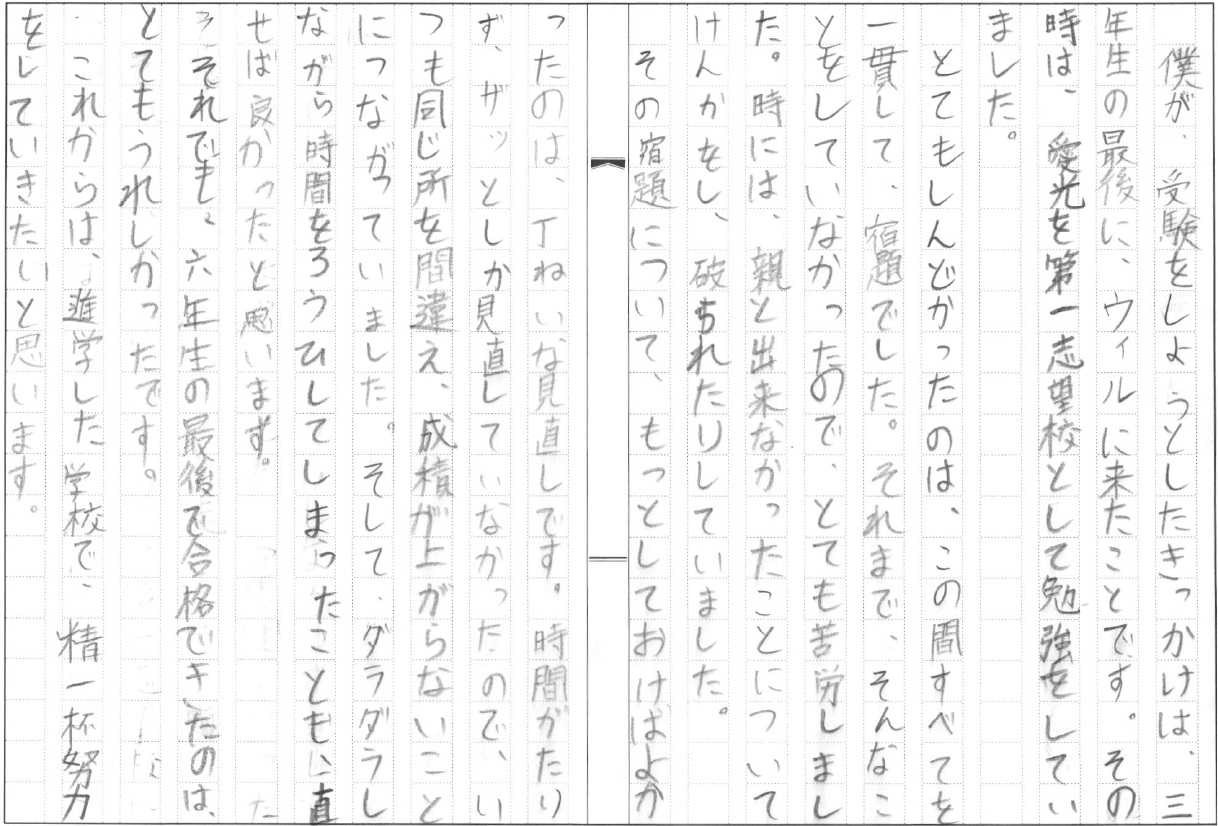 僕が、受験をしようとしたきっかけは、三
年生の最後に、ウィルに来たことです。その
時は、愛光を第一志望校として勉強をしてい
ました。
とてもしんどかったのは、この間すべてを
一貫して、宿題でした。それまで、そんなこ
とをしていなかったので、とても苦労しまし
た。時には、親と出来なかったことについて
けんかをし、破られたりしていました。
その宿題について、もっとしておけばよか
ったのは、丁ねいな見直しです。時間がたり
ず、ザッとしか見直していなかったので、い
つも同じ所を間違え、成積が上がらないこと
につながっていました。そして、ダラダラし
ながら時間をろうひしてしまったことも、直
せば良かったと思います。
それでも、六年生の最後で合格できたのは、
とてもうれしかったです。
これからは、進学した学校で、精一杯努力
をしていきたいと思います。